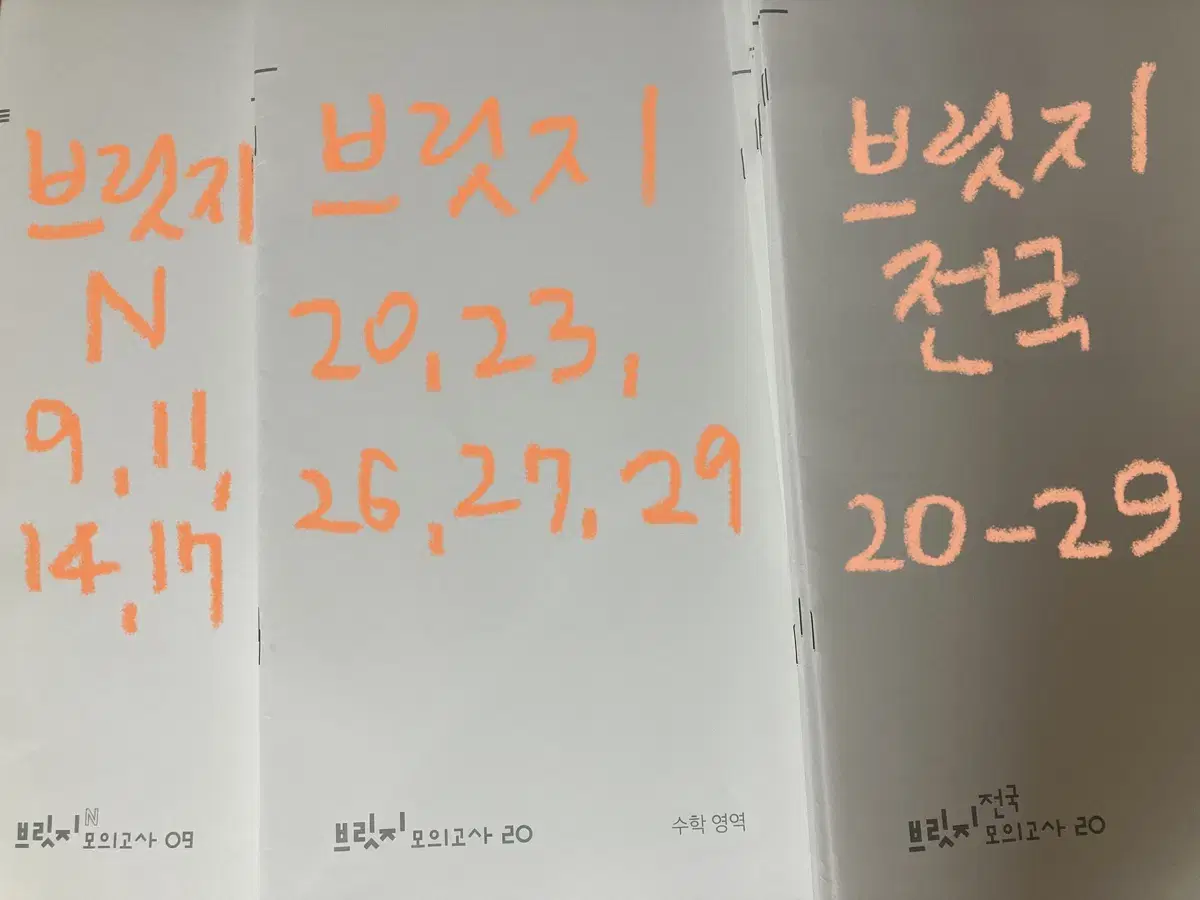 브릿지
N
9, 11,
14, 17
브릿지N 모의고사 09
브릿지
20, 23,
26, 27, 29
브릿지 모의고사 20
수학 영역
브릿지
전국
20-29
브릿지 전국 모의고사 20